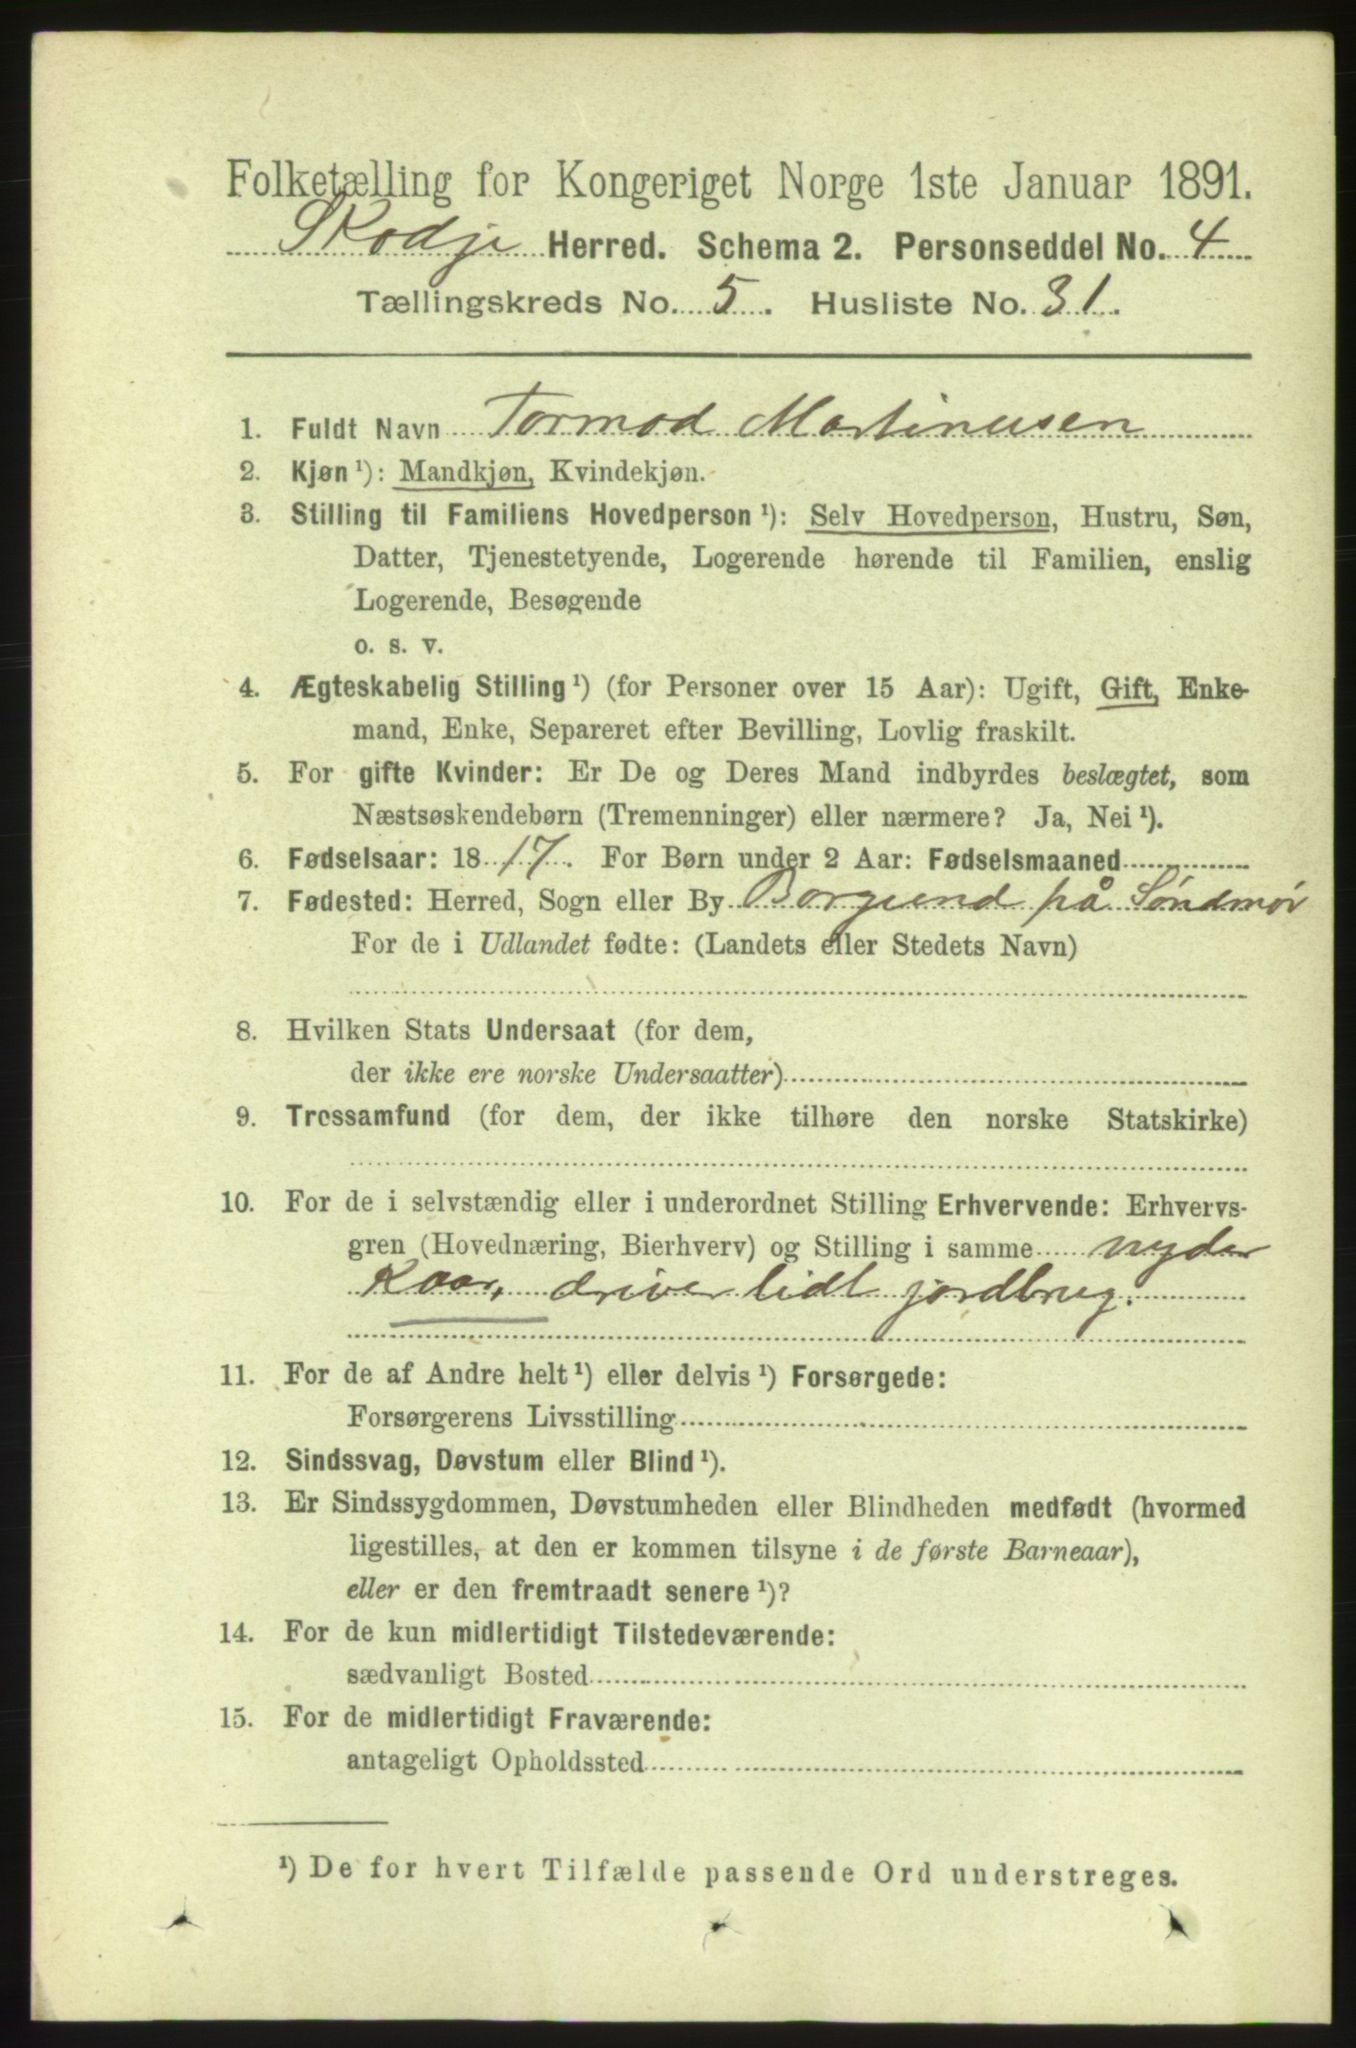 Folketælling for Kongeriget Norge 1ste Januar 1891.
Skodje Herred. Schema 2. Personseddel No. 4
Tællingskreds No. 5. Husliste No. 31.
1. Fuldt Navn Tormod Martinusen
2. Kjøn ¹): Mandkjøn, Kvindekjøn.
3. Stilling til Familiens Hovedperson ¹): Selv Hovedperson, Hustru, Søn,
Datter, Tjenestetyende, Logerende hørende til Familien, enslig
Logerende, Besøgende
o. s. v.
4. Ægteskabelig Stilling ¹) (for Personer over 15 Aar): Ugift, Gift, Enke-
mand, Enke, Separeret efter Bevilling, Lovlig fraskilt.
5. For gifte Kvinder: Er De og Deres Mand indbyrdes beslægtet, som
Næstsøskendebørn (Tremenninger) eller nærmere? Ja, Nei ¹).
6. Fødselsaar: 1817. For Børn under 2 Aar: Fødselsmaaned
7. Fødested: Herred, Sogn eller By Borgund på Søndmør
For de i Udlandet fødte: (Landets eller Stedets Navn)
8. Hvilken Stats Undersaat (for dem,
der ikke ere norske Undersaatter)
9. Trossamfund (for dem, der ikke tilhøre den norske Statskirke)
10. For de i selvstændig eller i underordnet Stilling Erhvervende: Erhvervs-
gren (Hovednæring, Bierhverv) og Stilling i samme nyder
Kaar, driver lidt jordbrug.
11. For de af Andre helt ¹) eller delvis ¹) Forsørgede:
Forsørgerens Livsstilling
12. Sindssvag, Døvstum eller Blind ¹).
13. Er Sindssygdommen, Døvstumheden eller Blindheden medfødt (hvormed
ligestilles, at den er kommen tilsyne i de første Barneaar),
eller er den fremtraadt senere ¹)?
14. For de kun midlertidigt Tilstedeværende:
sædvanligt Bosted
15. For de midlertidigt Fraværende:
antageligt Opholdssted
¹) De for hvert Tilfælde passende Ord understreges.